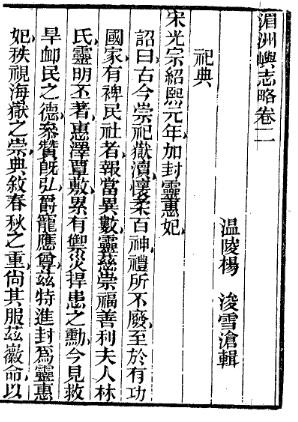 湄洲嶼志略卷二
温陵楊　浚雪滄輯
祀典
宋光宗紹熙元年加封靈惠妃
詔曰古今崇祀嶽瀆懷柔百神禮所不廢至於有功
國家有裨民社者報當異數靈茲崇福善利夫人林
氏靈明丕著惠澤覃敷累有禦災捍患之勳今見救
旱卹民之德參贊旣弘爵寵應尊茲特進封爲靈惠
妃秩視海嶽之崇典敘春秋之重尙其服茲薇命以